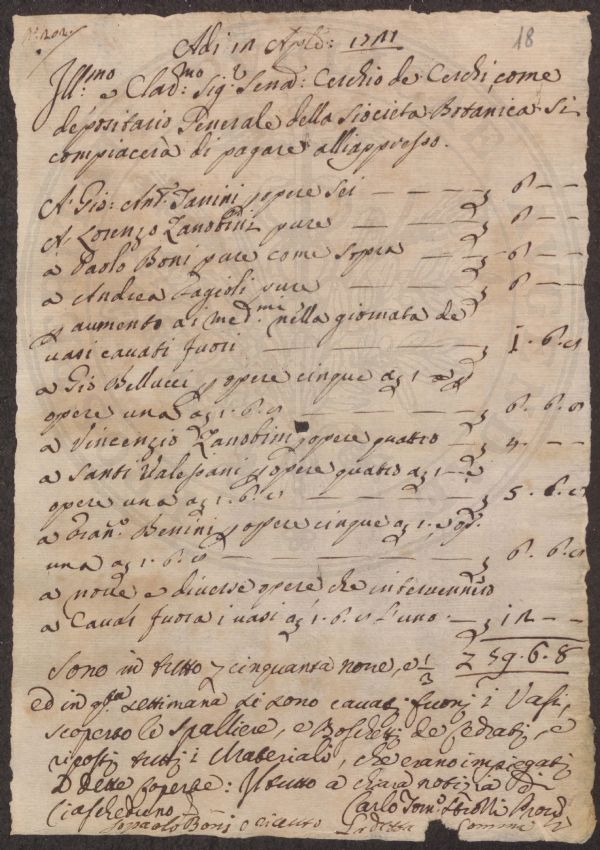 18
Adi 12 Aple: 1741
Ill:mo e Clar:mo Sig:r Send: Cerchio de Cerchi, come
depositario Generale della Siocieta Botanica si
compiacerà di pagare all'appresso.
A Gio: Ant:o Janini p opere sei — — — — 6 — —
A Lorenzo Zanobini pure — — — — 6 — —
a Paolo Boni pure come sopra — — — 6 — —
a Andrea Fagioli pure — — — — 6 — —
p aumento ai med:mi nella giornata de
vasi cavati fuori — — — — 1 . 6 . 8
a Gio Bellucci p opere cinque a 1
opere una a 1 . 6 . 8 — — — — 6 . 6 . 8
a Vincenzio Zanobini p opere quattro — 4 . — —
a Santi Valesiani p opere quatro a 1 — e
opere una a 1 . 6 . 8 — — — — 5 . 6 . 8
a Fran:o Benini p opere cinque a 1 . e op:
una a 1 . 6 . 8 — — — — 6 . 6 . 8
a nove e diverse opere che intervennero
a Cavar fuora i vasi a 1 . 6 . 8 l'uno — 12 — —
59 . 6 . 8
Sono in tutto cinquanta nove, e 1/3
ed in q:sta settimana si sono cavati fuori i Vasi,
scoperto le Spalliere, e Boschetti de Cedrati, e
riposti tutti i Materiali, che erano impiegati
a dette coperte: Il tutto a chiara notizia di
Ciascheduno
Io paolo Boni o riceuto